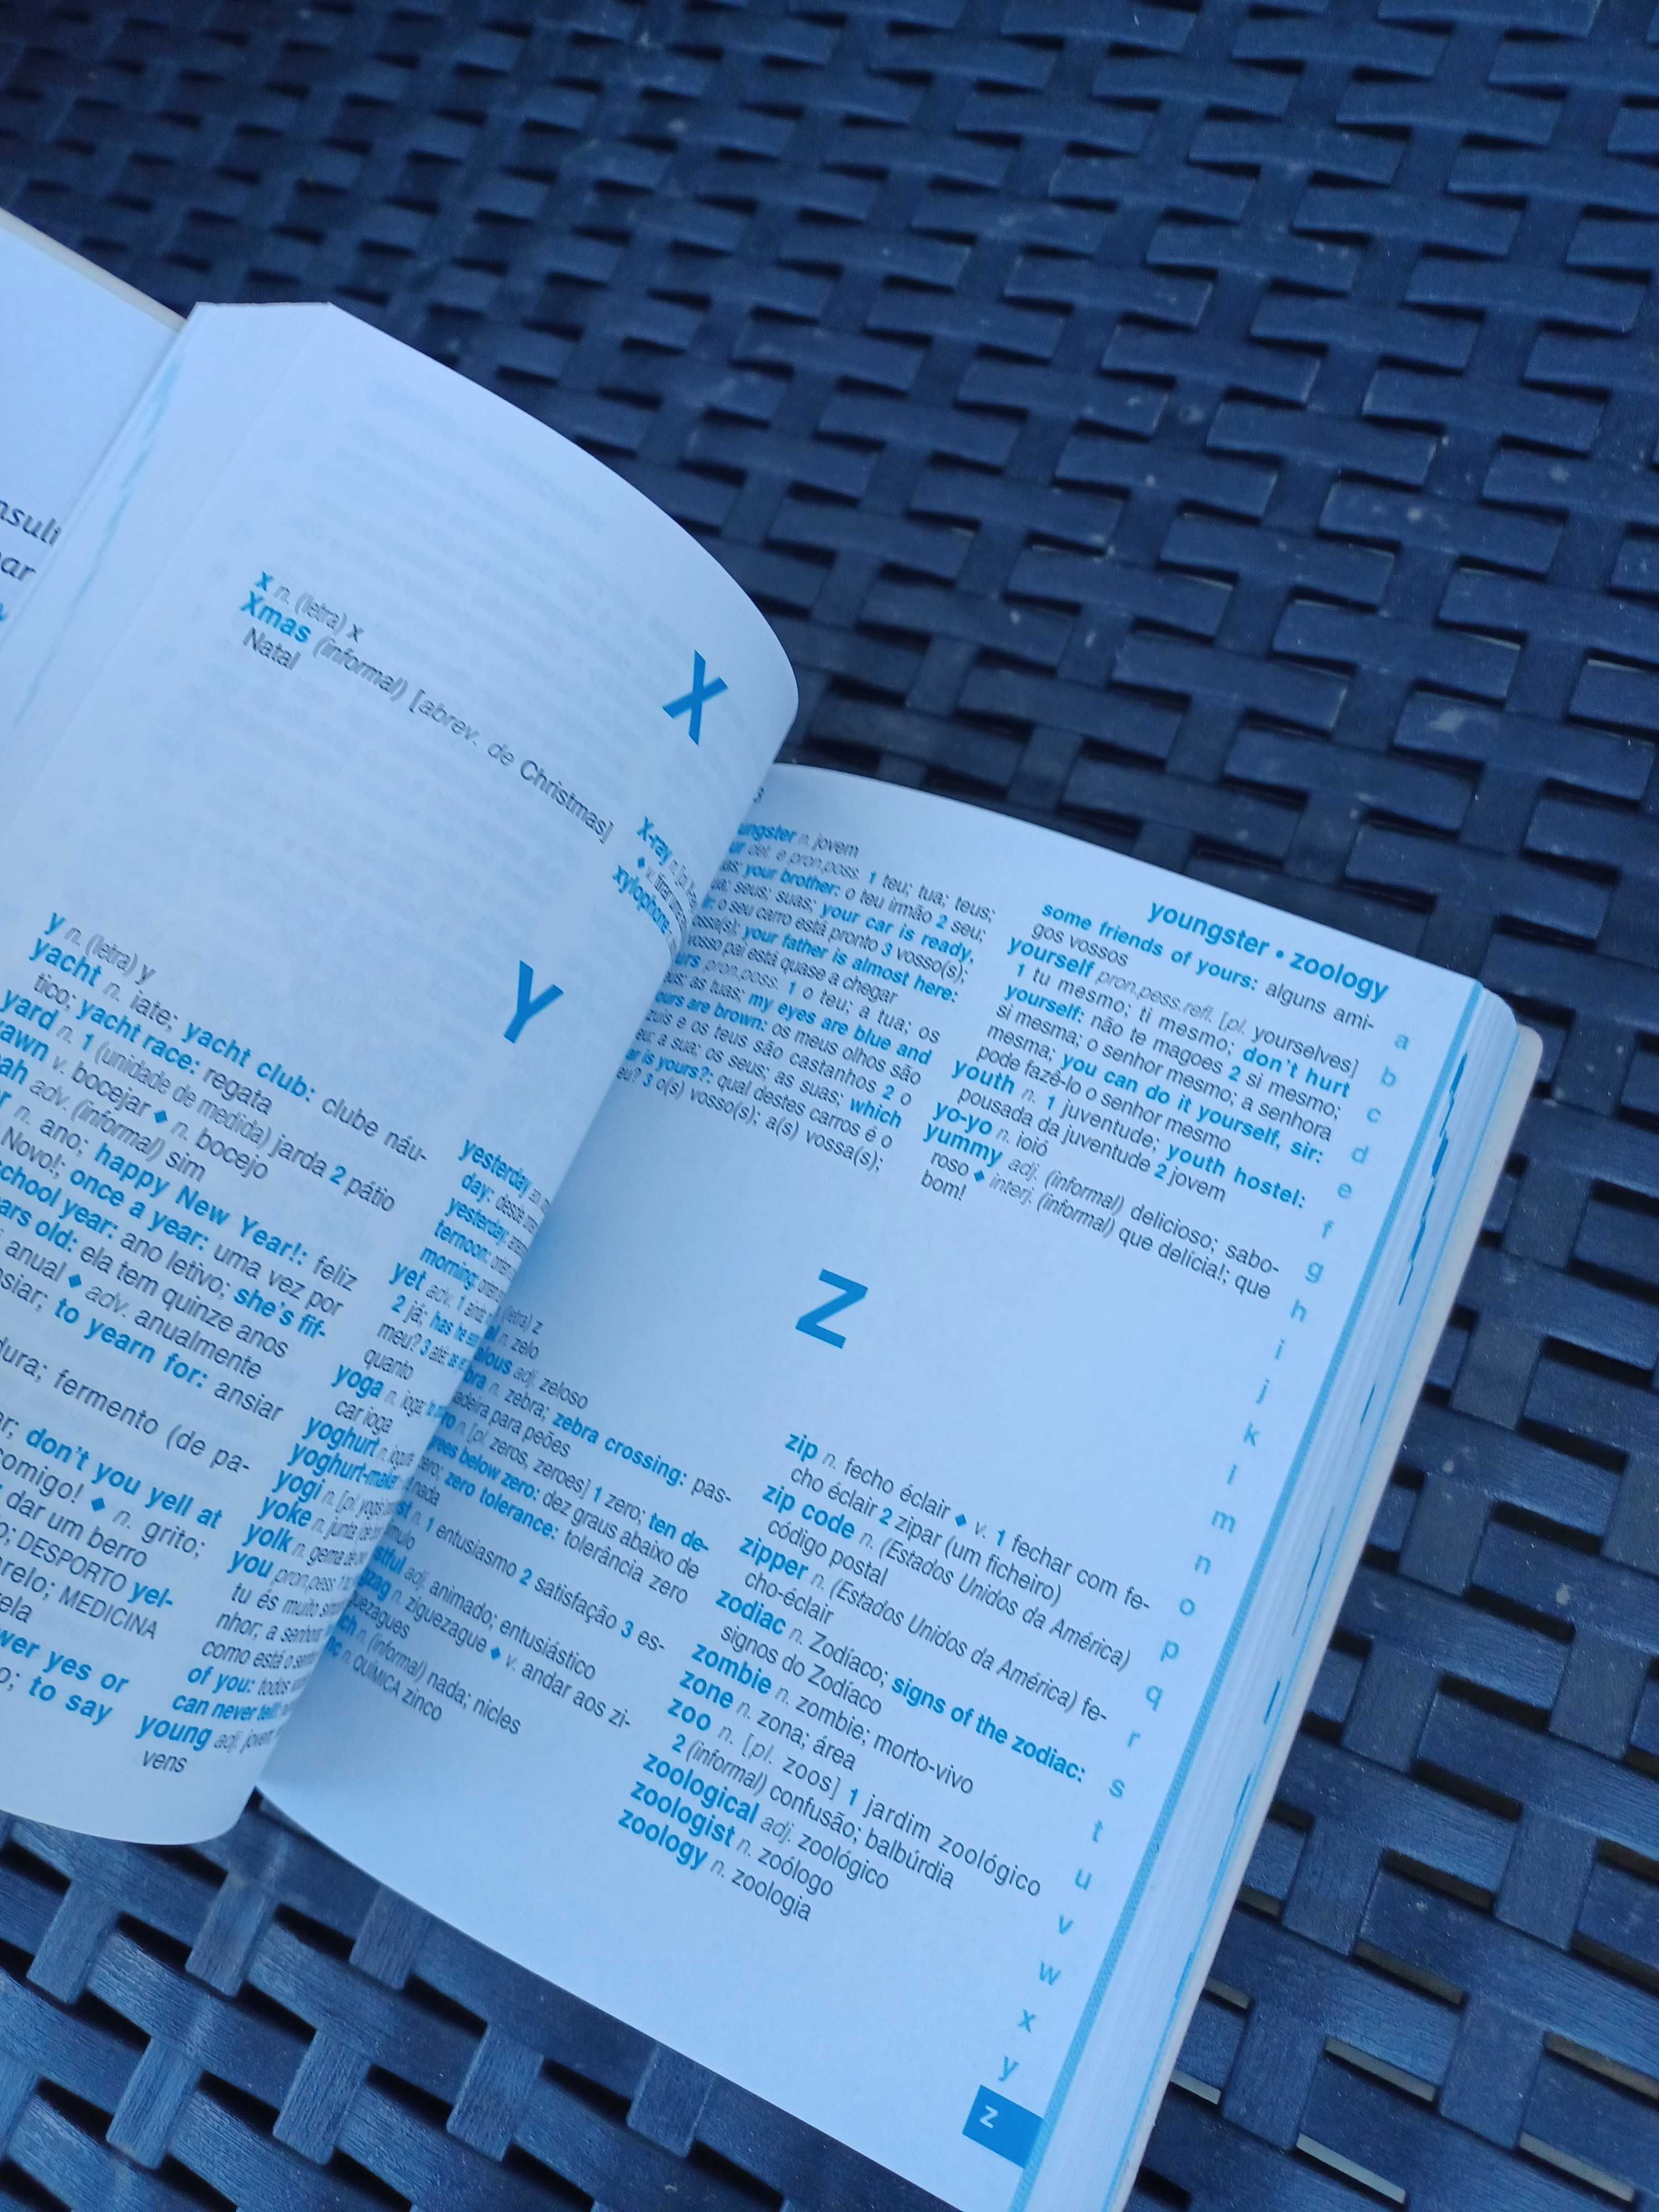 nsult
par
X
x n. (letra) x
Xmas (informal) [abrev. de Christmas]
Natal
X-ray n. [pl.
xylophone
Y
y n. (letra) y
yacht n. iate; yacht club: clube náu-
tico; yacht race: regata
yard n. 1 (unidade de medida) jarda 2 pátio
yawn v. bocejar ◆ n. bocejo
adv. (informal) sim
n. ano; happy New Year!: feliz
Novo!; once a year: uma vez por
school year: ano letivo; she's fif-
old: ela tem quinze anos
anual ◆ adv. anualmente
to yearn for: ansiar
fermento (de pa-
don't you yell at
comigo! ◆ n. grito;
dar um berro
DESPORTO yel-
MEDICINA
yes or
to say
yesterday
day: desde
yesterday:
ternoon:
morning:
yet adv. 1
2 já; has he
meu? 3 até;
quanto
yoga n. ioga;
car ioga
yoghurt n. iogurte
yoghurt-maker
yogi n. [pl. yogis
yoke n. junta de
yolk n. gema de
you pron.pess. 1
tu és muito
nhor; a senhora
como está o
of you: todos
can never tell:
young adj. jovem
vens
youngster • zoology
n. jovem
det. e pron.poss. 1 teu; tua; teus;
your brother: o teu irmão 2 seu;
seus; suas; your car is ready,
o seu carro está pronto 3 vosso(s);
your father is almost here:
vosso pai está quase a chegar
pron.poss. 1 o teu; a tua; os
as tuas; my eyes are blue and
yours are brown: os meus olhos são
e os teus são castanhos 2 o
a sua; os seus; as suas; which
is yours?: qual destes carros é o
3 o(s) vosso(s); a(s) vossa(s);
some friends of yours: alguns ami-
gos vossos
yourself pron.pess.refl. [pl. yourselves]
1 tu mesmo; ti mesmo; don't hurt
yourself: não te magoes 2 si mesmo;
si mesma; o senhor mesmo; a senhora
mesma; you can do it yourself, sir:
pode fazê-lo o senhor mesmo
youth n. 1 juventude; youth hostel:
pousada da juventude 2 jovem
yo-yo n. ioió
yummy adj. (informal) delicioso; sabo-
roso ◆ interj. (informal) que delícia!; que
bom!
Z
(letra) z
n. zelo
adj. zeloso
n. zebra; zebra crossing: pas-
para peões
n. [pl. zeros, zeroes] 1 zero; ten de-
below zero: dez graus abaixo de
zero tolerance: tolerância zero
nada
n. 1 entusiasmo 2 satisfação 3 es-
adj. animado; entusiástico
n. ziguezague ◆ v. andar aos zi-
guezagues
n. (informal) nada; nicles
n. QUÍMICA zinco
zip n. fecho éclair ◆ v. 1 fechar com fe-
cho éclair 2 zipar (um ficheiro)
zip code n. (Estados Unidos da América)
código postal
zipper n. (Estados Unidos da América) fe-
cho-éclair
zodiac n. Zodíaco; signs of the zodiac:
signos do Zodíaco
zombie n. zombie; morto-vivo
zone n. zona; área
zoo n. [pl. zoos] 1 jardim zoológico
2 (informal) confusão; balbúrdia
zoological adj. zoológico
zoologist n. zoólogo
zoology n. zoologia
a
b
c
d
e
f
g
h
i
j
k
l
m
n
o
p
q
r
s
t
u
v
w
x
y
z